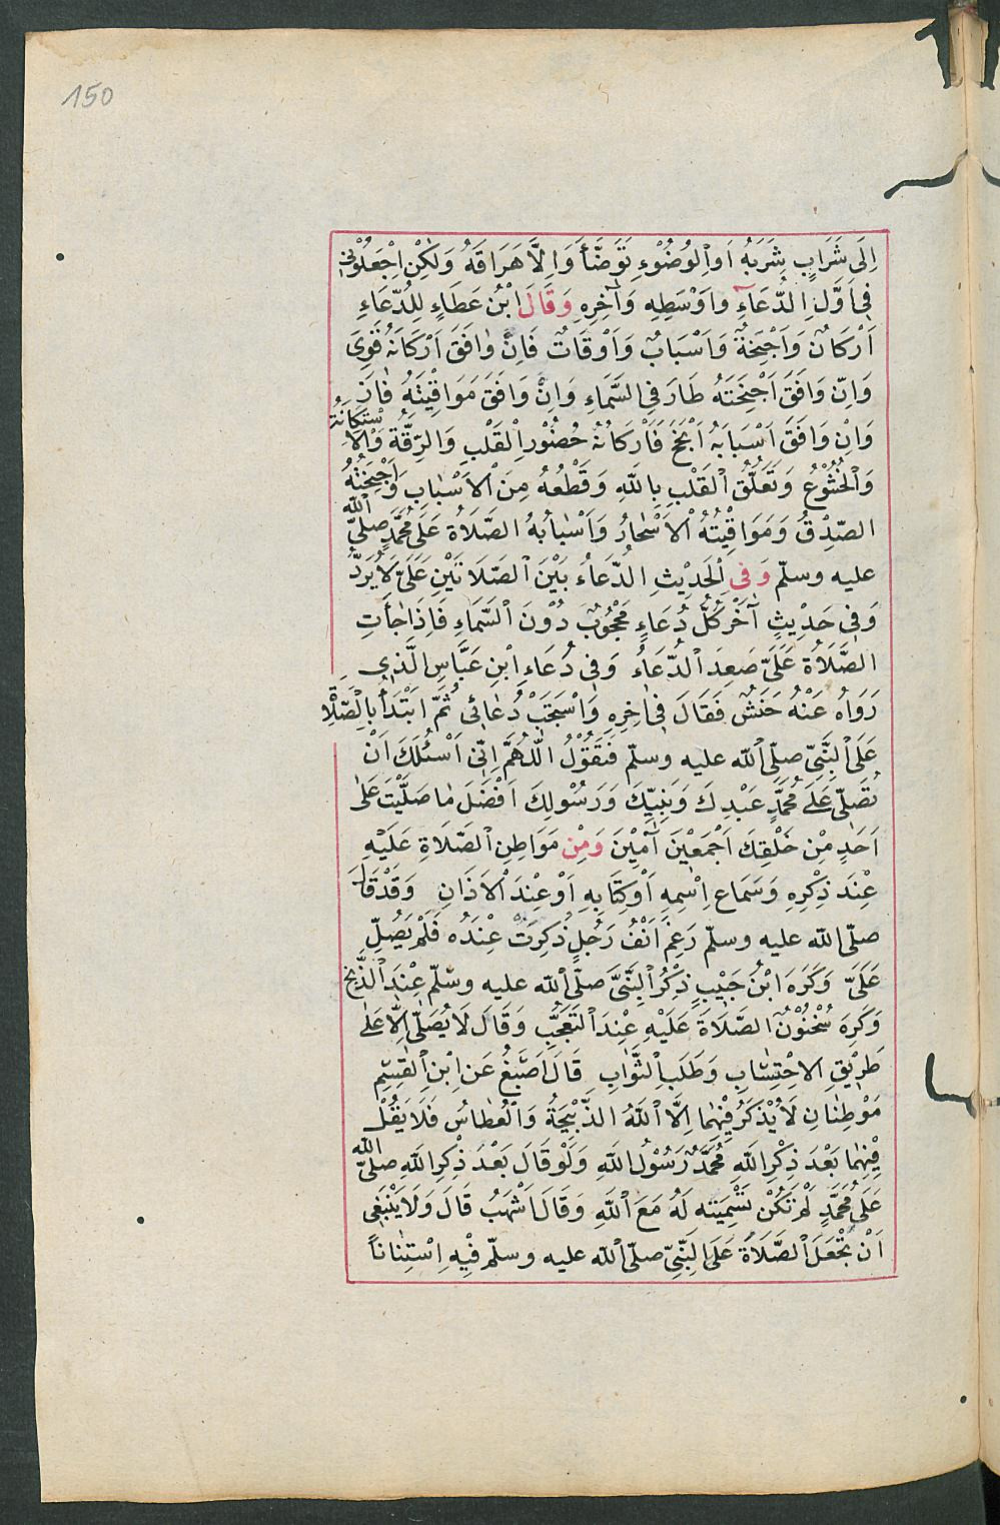 150
اِلَى شَرَابٍ شَرِبَهُ اَوِ الْوُضُوْءِ تَوَضَّأَ وَاِلَّا هَرَاقَهُ وَلٰكِنْ اِجْعَلُوْنِي
فِى اَوَّلِ الدُّعَاءِ وَاَوْسَطِهِ وَآخِرِهِ وَقَالَ ابْنُ عَطَاءٍ لِلدُّعَاءِ
اَرْكَانٌ وَاَجْنِحَةٌ وَاَسْبَابٌ وَاَوْقَاتٌ فَاِنْ وَافَقَ اَرْكَانَهُ قَوِىَ
وَاِنْ وَافَقَ اَجْنِحَتَهُ طَارَ فِى السَّمَاءِ وَاِنْ وَافَقَ مَوَاقِيْتَهُ فَازَ
وَاِنْ وَافَقَ اَسْبَابَهُ اَنْجَحَ فَاَرْكَانُهُ حُضُوْرُ الْقَلْبِ وَالرِّقَّةُ وَالاِسْتِكَانَةُ
وَالْخُشُوْعُ وَتَعَلُّقُ الْقَلْبِ بِاللهِ وَقَطْعُهُ مِنَ الْاَسْبَابِ وَاَجْنِحَتُهُ
الصِّدْقُ وَمَوَاقِيْتُهُ الْاَسْحَارُ وَاَسْبَابُهُ الصَّلَاةُ عَلَى مُحَمَّدٍ صلّى الله
عليه وسلّم وَفِى الْحَدِيْثِ الدُّعَاءُ بَيْنَ الصَّلَاتَيْنِ عَلَىَّ لَا يُرَدُّ
وَفِى حَدِيْثٍ آخَرَ كُلُّ دُعَاءٍ مَحْجُوْبٌ دُوْنَ السَّمَاءِ فَاِذَا جَاءَتِ
الصَّلَاةُ عَلَىَّ صَعِدَ الدُّعَاءُ وَفِى دُعَاءِ ابْنِ عَبَّاسٍ الَّذِى
رَوَاهُ عَنْهُ حَنَشٌ فَقَالَ فِى اٰخِرِهِ وَاسْتَجِبْ دُعَائِى ثُمَّ ابْتَدَأَ بِالصَّلٰاةِ
عَلَى النَّبِىِّ صلّى الله عليه وسلّم فَتَقُوْلُ اللّٰهُمَّ اِنِّى اَسْئَلُكَ اَنْ
تُصَلِّىَ عَلَى مُحَمَّدٍ عَبْدِكَ وَنَبِيِّكَ وَرَسُوْلِكَ اَفْضَلَ مَا صَلَّيْتَ عَلٰى
اَحَدٍ مِنْ خَلْقِكَ اَجْمَعِيْنَ آمِيْنَ وَمِنْ مَوَاطِنِ الصَّلَاةِ عَلَيْهِ
عِنْدَ ذِكْرِهِ وَسَمَاعِ اِسْمِهِ اَوْ كِتَابِهِ اَوْ عِنْدَ الْاَذَانِ وَقَدْ قَالَ
صلّى الله عليه وسلّم رَغِمَ اَنْفُ رَجُلٍ ذُكِرْتُ عِنْدَهُ فَلَمْ يُصَلِّ
عَلَىَّ وَكَرِهَ ابْنُ حَبِيْبٍ ذِكْرَ النَّبِىِّ صلّى الله عليه وسلّم عِنْدَ الذَّبْحِ
وَكَرِهَ سُحْنُوْنُ الصَّلَاةَ عَلَيْهِ عِنْدَ التَّعَجُّبِ وَقَالَ لَا يُصَلّٰى اِلَّا عَلٰى
طَرِيْقِ الاِحْتِسَابِ وَطَلَبِ الثَّوَابِ قَالَ اَصْبَغُ عَنِ ابْنِ الْقٰسِمِ
مَوْطِنَانِ لَا يُذْكَرُ فِيْهِمَا اِلَّا اللهُ الذَّبِيْحَةُ وَالْعُطَاسُ فَلَا يَقُلْ
فِيْهِمَا بَعْدَ ذِكْرِ اللهِ مُحَمَّدٌ رَسُوْلُ اللهِ وَلَوْ قَالَ بَعْدَ ذِكْرِ اللهِ صلّى الله
عَلَى مُحَمَّدٍ لَمْ تَكُنْ تَسْمِيَتِه لَهُ مَعَ اللهِ وَقَالَ اَشْهَبُ قَالَ وَلَا يَنْبَغِى
اَنْ تُجْعَلَ الصَّلَاةُ عَلَى النَّبِىِّ صلّى الله عليه وسلّم فِيْهِ اِسْتِنَاناً